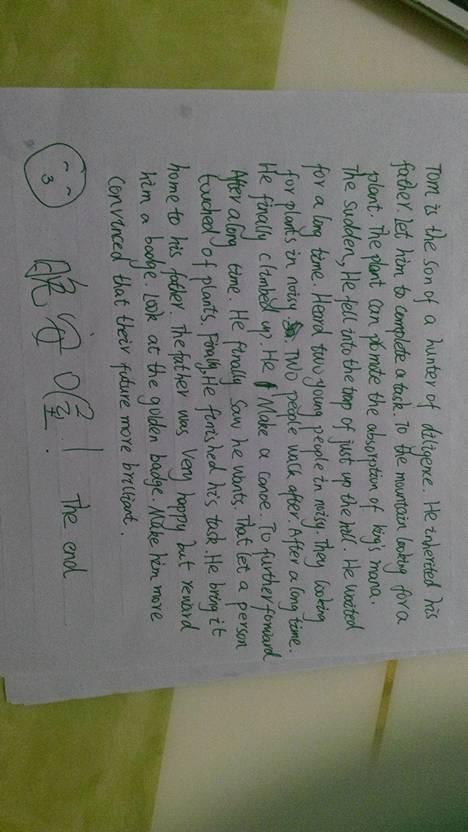 Tom is the son of a hunter of dilligence. He inherited his
father. Let him to complete a task. To the mountain looking for a
plant. The plant can promote the absorption of king's mana.
The sudden, He fell into the trap of just up the hill. He waited
for a long time. Heard two young people in noisy. they looking
for plants in noisy. Two people walk after. After a long time.
He finally climbed up. He Make a canoe. To further forward
After a long time. He finally saw he wants. That let a person
touched of plants. Finally, He finished his task. He bring it
home to his father. The father was very happy but reward
him a badge. Look at the golden badge. Make him more
convinced that their future more brilliant.
The end